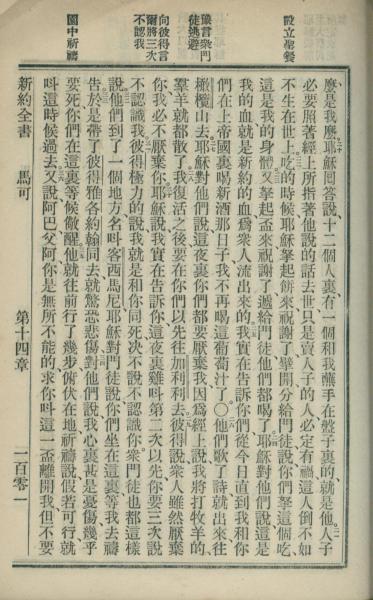 設立聖餐
豫言衆門
徒逃避
向彼得言
爾將三次
不認我
園中祈禱
麽是我麽耶穌回答說十二個人裏有一個和我蘸手在盤子裏的就是他人子
必要照著經上所指著他說的話去世只是賣人子的人必定有禍這人倒不如
不生在世上吃的時候耶穌拏起餅來祝謝了擘開分給門徒說你們拏這個吃
這是我的身體又拏起盃來祝謝了遞給門徒他們都喝了耶穌對他們說這是
我的血就是新約的血爲衆人流出來的我實在告訴你們從今日直到我和你
們在上帝國裏喝新酒那日子我不再喝這葡萄汁了○他們歌了詩就出來往
橄欖山去耶穌對他們說這夜裏你們都要厭棄我因爲經上說我將打牧羊的
羊就都散了我復活之後要在你們以先往加利利去彼得說衆人雖然厭棄
你我必不厭棄你耶穌說我實在告訴你這夜裏雞叫第二次以先你要三次說
不認識我彼得極力的說我就是和你同死决不說不認識你衆門徒也都這樣
說他們到了一個地方名叫客西馬尼耶穌對門徒說你們坐在這裏等我去禱
告於是帶了彼得雅各約翰同去就驚恐悲傷對他們說我心裏甚是憂傷幾乎
要死你們在這裏等候儆醒他就往前行了幾步俯伏在地祈禱說假若可行就
叫這時候過去又說阿巴父阿你是無所不能的求你叫這一盃離開我但不要
新約全書 馬可 第十四章 一百零一